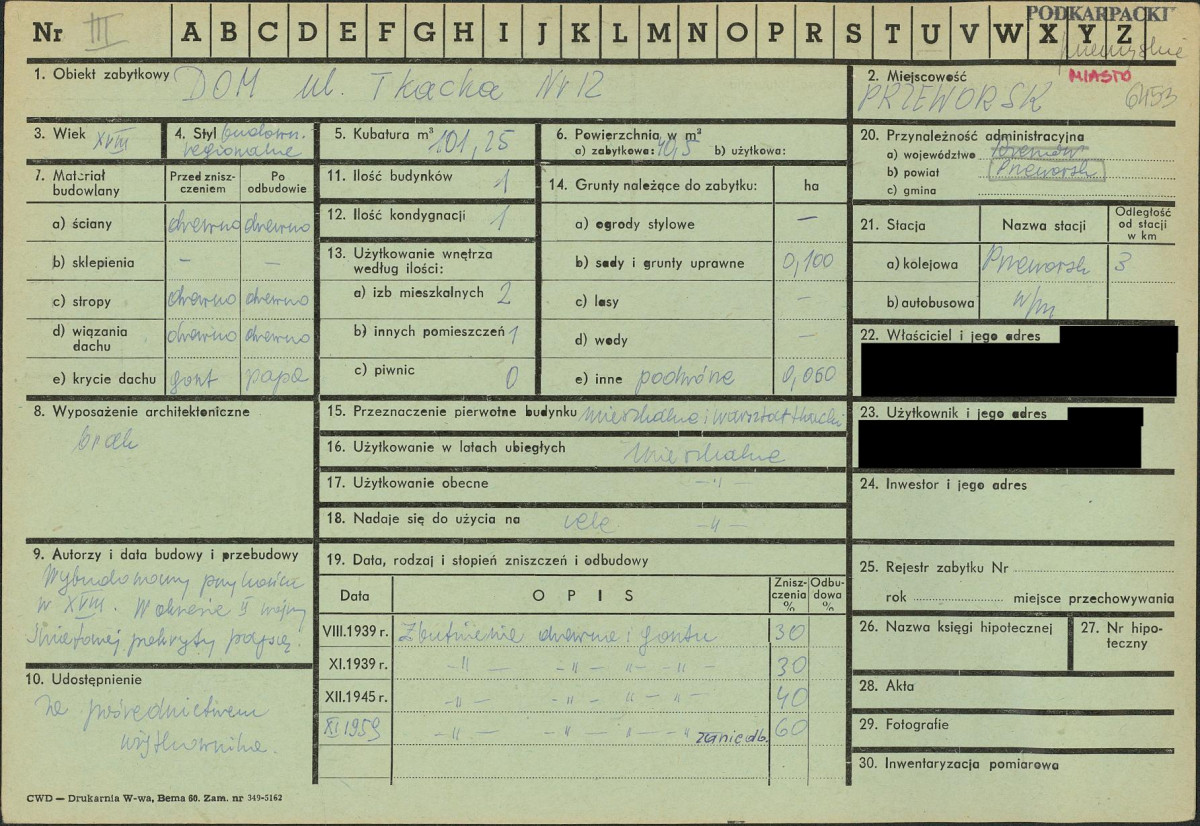 Nr III A B C D E F G H I J K L M N O P R S T U V W X Y Z
PODKARPACKI
przemyskie
1. Obiekt zabytkowy DOM ul. Tkacka Nr 12
2. Miejscowość MIASTO
PRZEWORSK 6453
3. Wiek XVIII
4. Styl budown.
regionalne
5. Kubatura m³ 101,25
6. Powierzchnia w m²
a) zabytkowa: 40,5 b) użytkowa:
20. Przynależność administracyjna
a) województwo Rzeszów
b) powiat Przeworsk
c) gmina
7. Materiał budowlany
Przed zniszczeniem
Po odbudowie
a) ściany drewno drewno
b) sklepienia – –
c) stropy drewno drewno
d) wiązania dachu drewno drewno
e) krycie dachu gont papa
11. Ilość budynków 1
12. Ilość kondygnacji 1
13. Użytkowanie wnętrza
według ilości:
a) izb mieszkalnych 2
b) innych pomieszczeń 1
c) piwnic 0
14. Grunty należące do zabytku: ha
a) ogrody stylowe –
b) sady i grunty uprawne 0,100
c) lasy –
d) wody –
e) inne podwórze 0,060
21. Stacja Nazwa stacji Odległość
od stacji
w km
a) kolejowa Przeworsk 3
b) autobusowa w/m
22. Właściciel i jego adres
23. Użytkownik i jego adres
8. Wyposażenie architektoniczne
brak
15. Przeznaczenie pierwotne budynku mieszkalne i warsztat tkacki
16. Użytkowanie w latach ubiegłych mieszkalne
17. Użytkowanie obecne –"–
18. Nadaje się do użycia na cele –"–
24. Inwestor i jego adres
9. Autorzy i data budowy i przebudowy
Wybudowany
w XVIII. W okresie II wojny
światowej pokryty papą.
19. Data, rodzaj i stopień zniszczeń i odbudowy
Data OPIS Zniszczenia % Odbudowa %
VIII.1939 r. Zbutwienie drewna i gontu 30
XI.1939 r. –"– –"– " –"– 30
XII.1945 r. –"– –"– " –"– 40
XI 1959 –"– –"– " –" zaniedb. 60
10. Udostępnienie
Za pośrednictwem
użytkownika.
25. Rejestr zabytku Nr
rok miejsce przechowywania
26. Nazwa księgi hipotecznej
27. Nr hipoteczny
28. Akta
29. Fotografie
30. Inwentaryzacja pomiarowa
CWD — Drukarnia W-wa, Bema 60. Zam. nr 349-5162